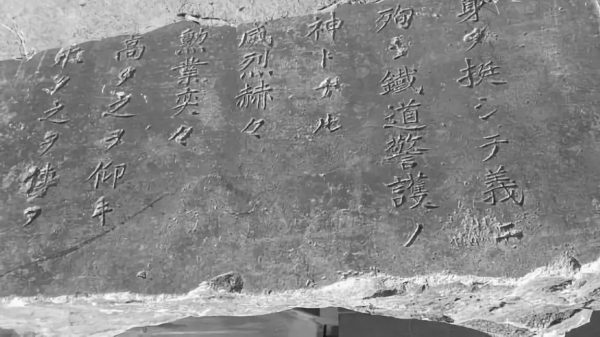 身ヲ挺シテ義ニ
殉シ鐵道警護ノ
神トナル
威烈赫々
勳業奕々
高ク之ヲ仰キ
ク之ヲ傳フ